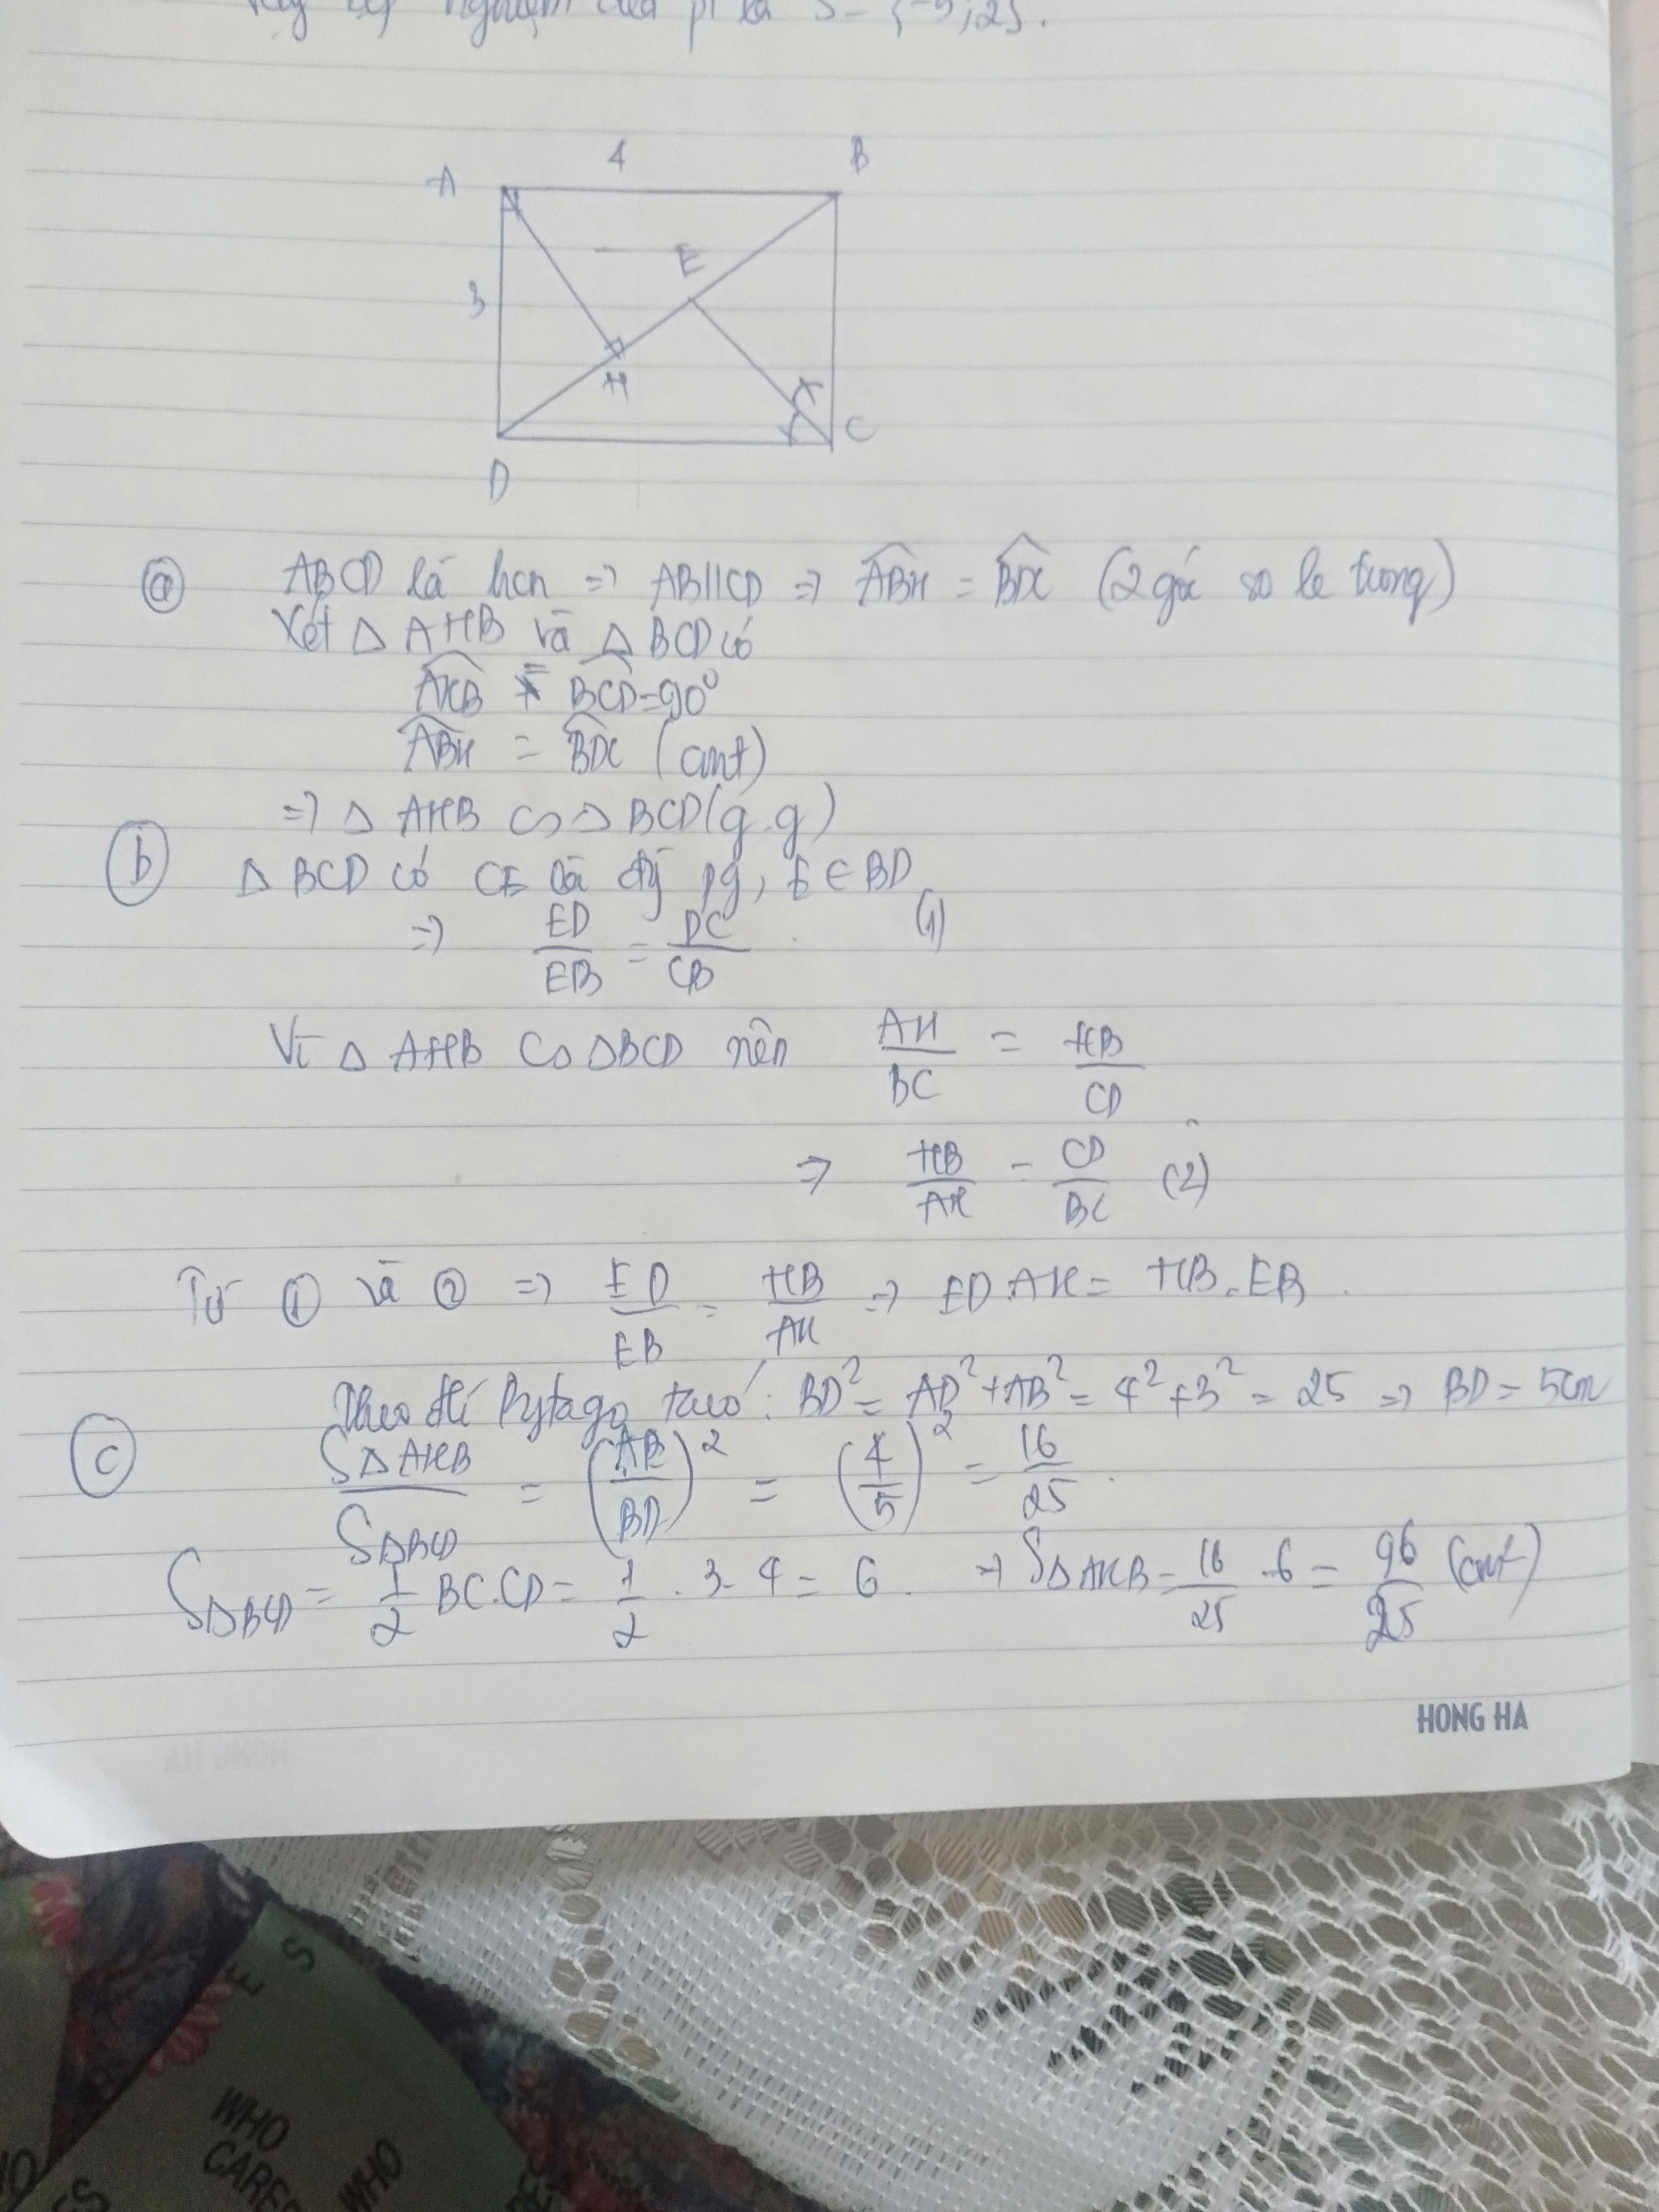 nghiệm của pt là S = {-3;2}.
4
A
B
E
3
H
C
D
a ABCD là hcn => AB//CD => ABH = BDC (2 góc so le trong)
Xét △ AHB và △ BCD có
AHB = BCD = 90°
ABH = BDC (cmt)
=> △ AHB ∽ △ BCD (g.g)
b △ BCD có CE là đg pg, E ∈ BD
=> ED/EB = DC/CB (1)
Vì △ AHB ∽ △BCD nên AH/BC = HB/CD
=> HB/AH = CD/BC (2)
Từ ① và ② => ED/EB = HB/AH => ED.AH = HB.EB.
Theo đlí Pytago ta có: BD² = AD² + AB² = 4² + 3² = 25 => BD = 5cm
c S△AHB/S△BCD = (AB/BD)² = (4/5)² = 16/25.
S△BCD = 1/2 BC.CD = 1/2 . 3. 4 = 6. => S△AHB = 16/25 .6 = 96/25 (cm²)
HONG HA
E S
WHO
CARES
WHO